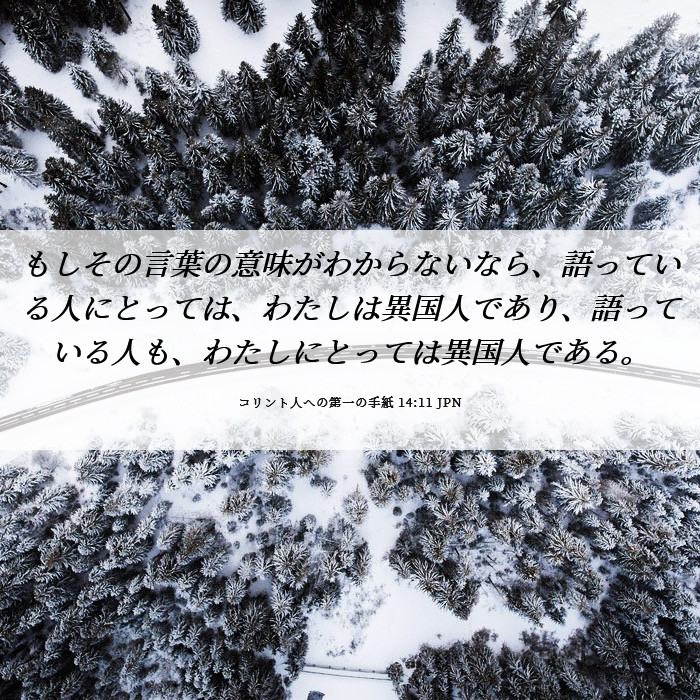 もしその言葉の意味がわからないなら、語ってい
る人にとっては、わたしは異国人であり、語って
いる人も、わたしにとっては異国人である。
コリント人への第一の手紙 14:11 JPN